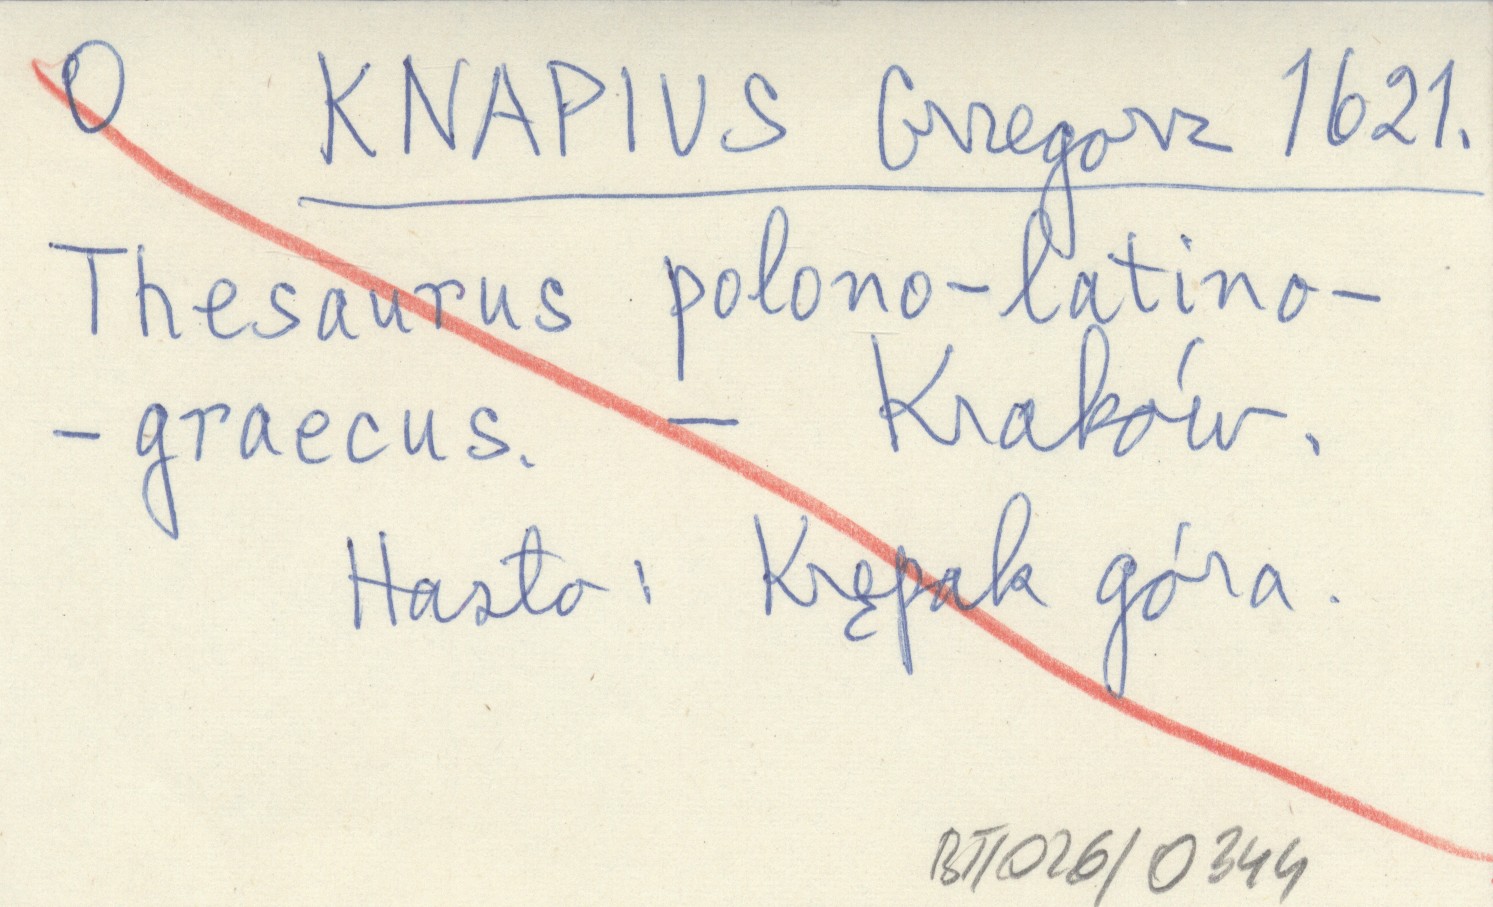 O KNAPIUS Grzegorz 1621.
Thesaurus polono-latino-
-graecus. — Kraków.
Hasło: Krępak góra.
BTI026/0344